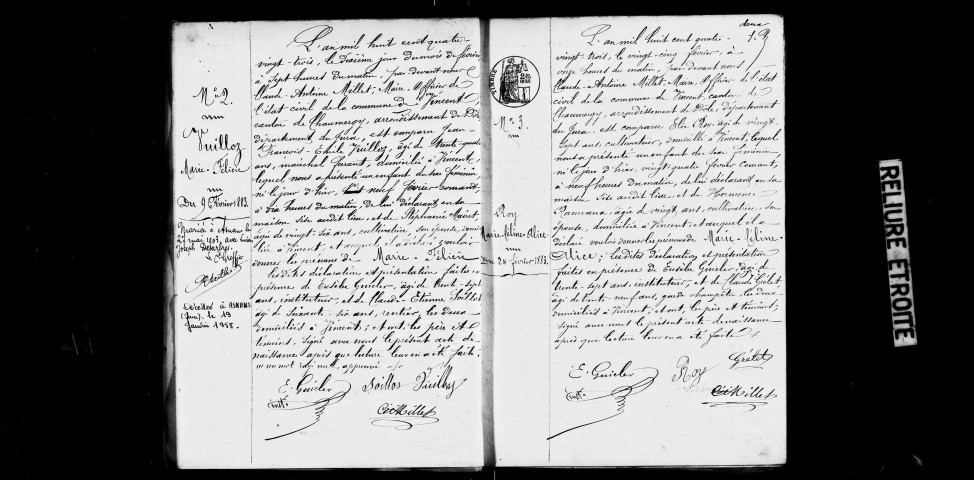 N° 2.
Vuilloz
Marie-Félicie
Du 9 Février 1883.
Mariée à
Décédée à
(Jura) le 19
janvier 1958.
L'an mil huit cent quatre-
vingt-trois, le dixième jour du mois de février
à sept heures du matin, par devant nous
Claude-Antoine Millet, Maire, Officier de
l'état civil de la commune de Vincent,
canton de Chaumergy, arrondissement de Dole
département du Jura, est comparu Jean-
François-Emile Vuilloz, âgé de trente-quatre
ans, maréchal ferrant, domicilié à Vincent,
lequel nous a présenté un enfant du sexe féminin,
né le jour d'hier, neuf février courant,
à dix heures du matin, de lui déclarant en sa
maison sise audit lieu, et de Stéphanie
âgée de vingt-six ans, cultivatrice, son épouse, domici-
liée à Vincent, et auquel il a déclaré vouloir
donner les prénoms de Marie-Félicie
Lesdites déclaration et présentation faites en
présence de Eusèbe Guicler, âgé de trente-sept
ans, instituteur, et de Claude Etienne Soillot
âgé de soixante-six ans, rentier, les deux
domiciliés à Vincent; et ont, les père et
témoins, signé avec nous le présent acte de
naissance après que lecture leur en a été faite.
E. Guicler Soillot Vuilloz
inst.
Cte Millet
deux
TIMBRE
N° 3.
Roy
Marie-Céline-Alice
Du 24 février 1883.
L'an mil huit cent quatre-
vingt-trois, le vingt-cinq février, à
onze heures du matin, par devant nous
Claude-Antoine Millet, Maire, Officier de l'état
civil de la commune de Vincent, canton de
Chaumergy, arrondissement de Dole, département
du Jura, est comparu Elie Roy, âgé de vingt-
sept ans, cultivateur, domicilié à Vincent, lequel
nous a présenté un enfant du sexe féminin
né le jour d'hier, vingt-quatre février courant,
à neuf heures du matin, de lui déclarant en sa
maison sise audit lieu et de Hermance
âgée de vingt ans, cultivatrice, son
épouse, domiciliée à Vincent; et auquel il a
déclaré vouloir donner les prénoms de Marie-Céline-
Alice; lesdites déclaration et présentation
faites en présence de Eusèbe Guicler, âgé de
trente-sept ans, instituteur, et de Claude Grélet
âgé de trente-neuf ans, garde champêtre, les deux
domiciliés à Vincent; et ont, les père et témoins,
signé avec nous le présent acte de naissance
après que lecture leur en a été faite.
E. Guicler Roy Grélet
inst.
Cte Millet
RELIURE ETROITE